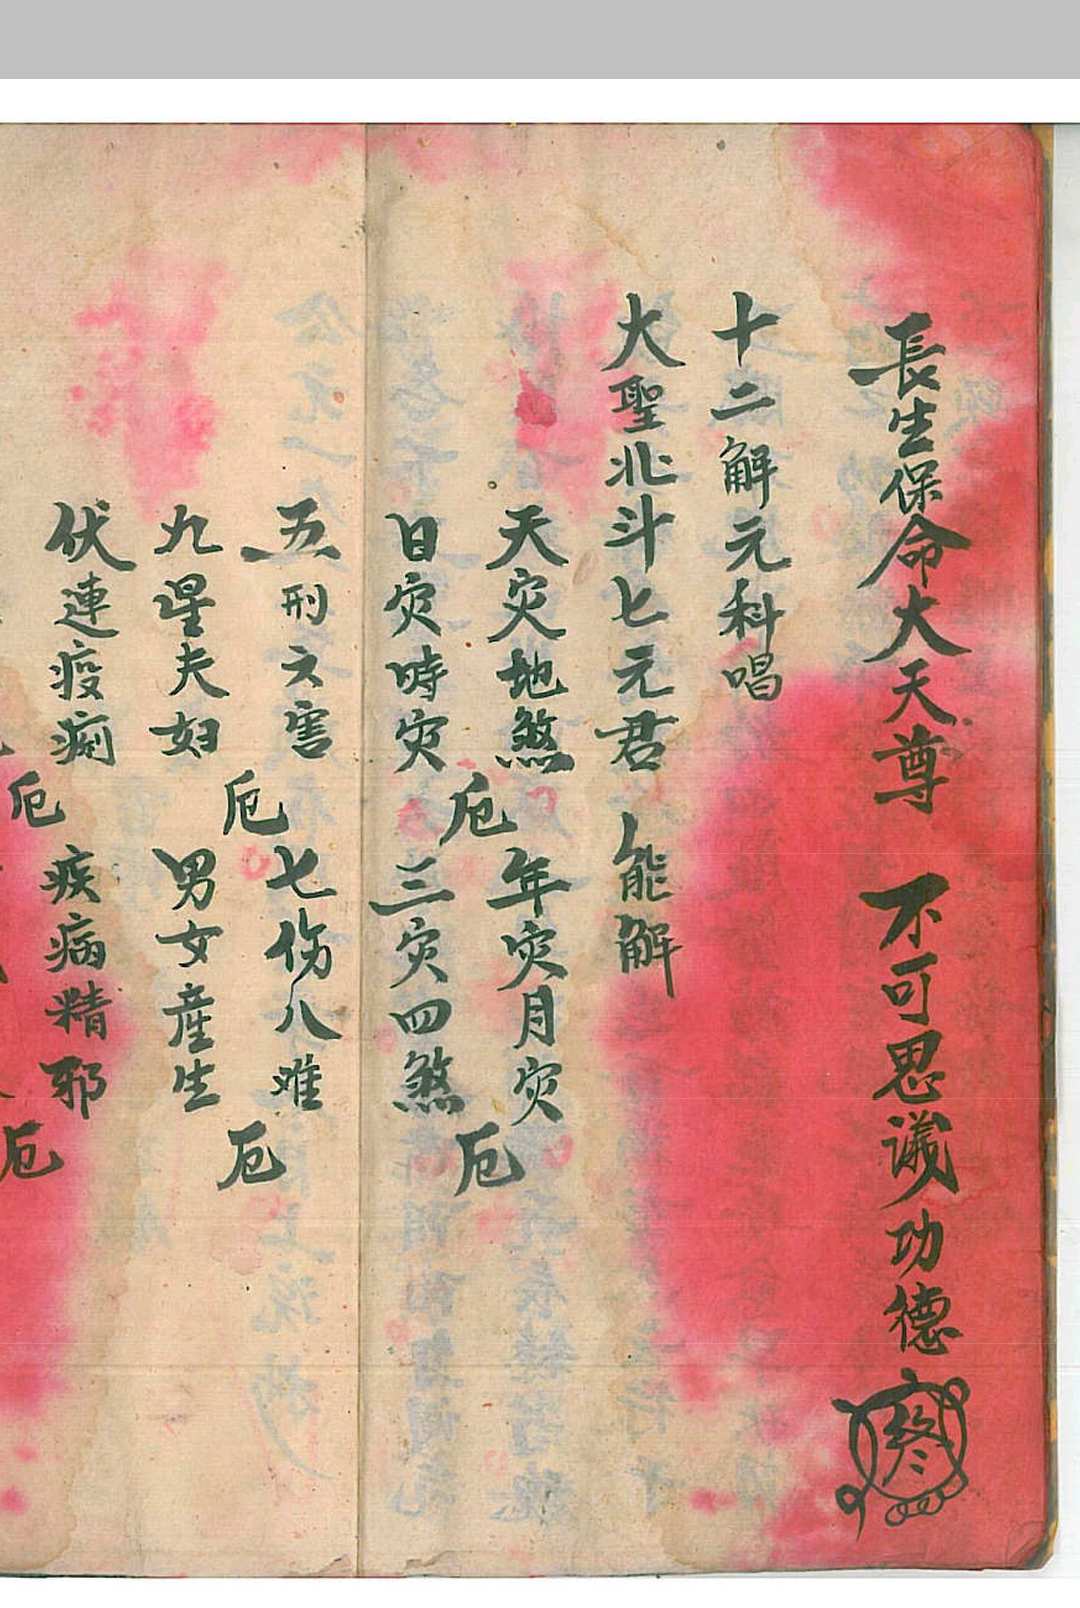 長生保命大天尊 不可思議功德
十二解元科唱
大聖北斗七元君 能解
天灾地煞厄年灾月灾厄
日灾時灾 三灾四煞
五刑六害厄七伤八难厄
九星夫妇 男女產生
伏連疫痢厄疾病精邪厄